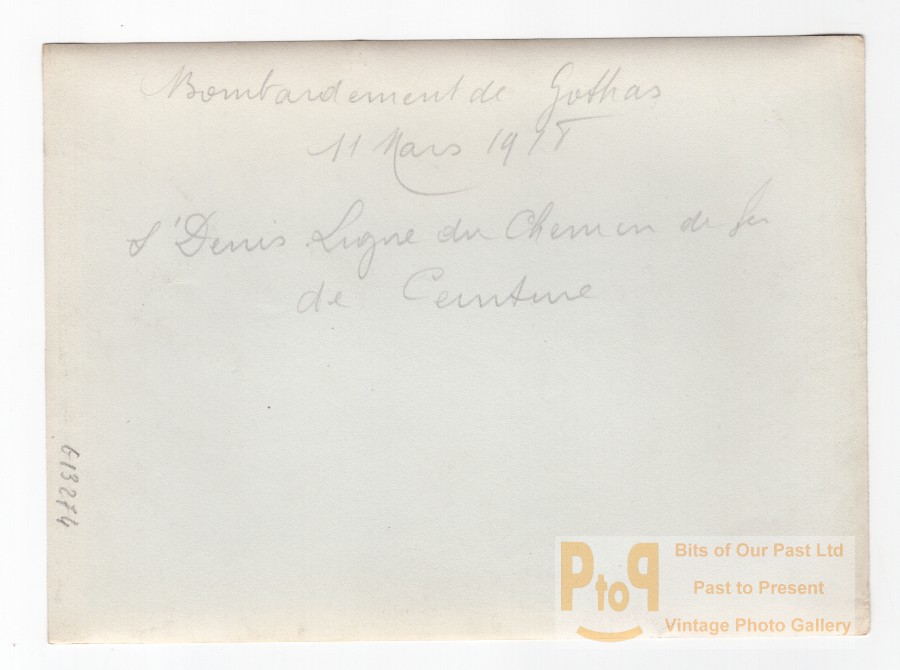 Bombardement de Gothas
11 Mars 1918
St Denis. Ligne du Chemin de fer
de Ceinture
PtoP
Bits of Our Past Ltd
Past to Present
Vintage Photo Gallery